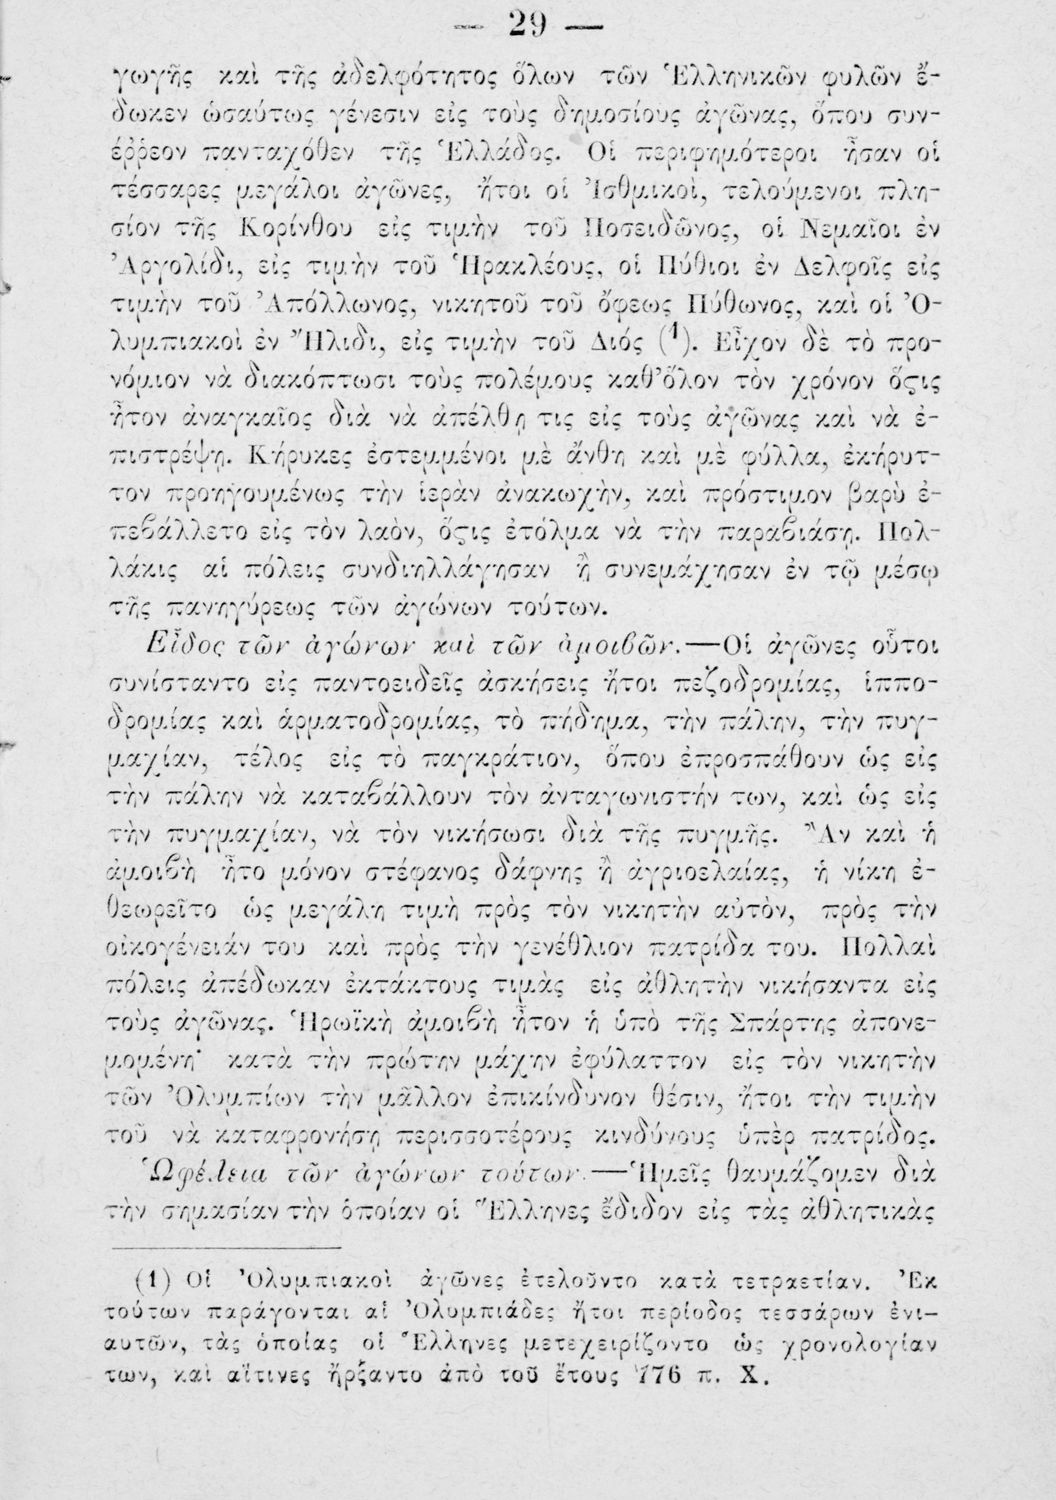 — 29 —
γωγῆς καὶ τῆς ἀδελφότητος ὅλων τῶν Ἑλληνικῶν φυλῶν ἔ-
δωκεν ὡσαύτως γένεσιν εἰς τοὺς δημοσίους ἀγῶνας, ὅπου συν-
έῤῥεον πανταχόθεν τῆς Ἑλλάδος. Οἱ περιφημότεροι ἦσαν οἱ
τέσσαρες μεγάλοι ἀγῶνες, ἤτοι οἱ Ἰσθμικοὶ, τελούμενοι πλη-
σίον τῆς Κορίνθου εἰς τιμὴν τοῦ Ποσειδῶνος, οἱ Νεμαῖοι ἐν
Ἀργολίδι, εἰς τιμὴν τοῦ Ἡρακλέους, οἱ Πύθιοι ἐν Δελφοῖς εἰς
τιμὴν τοῦ Ἀπόλλωνος, νικητοῦ τοῦ ὄφεως Πύθωνος, καὶ οἱ Ὀ-
λυμπιακοὶ ἐν Ἤλιδι, εἰς τιμὴν τοῦ Διός (1). Εἶχον δὲ τὸ προ-
νόμιον νὰ διακόπτωσι τοὺς πολέμους καθ’ὅλον τὸν χρόνον ὅςις
ἦτον ἀναγκαῖος διὰ νὰ ἀπέλθῃ τις εἰς τοὺς ἀγῶνας καὶ νὰ ἐ-
πιστρέψῃ. Κήρυκες ἐστεμμένοι μὲ ἄνθη καὶ μὲ φύλλα, ἐκήρυτ-
τον προηγουμένως τὴν ἱερὰν ἀνακωχὴν, καὶ πρόστιμον βαρὺ ἐ-
πεβάλλετο εἰς τὸν λαὸν, ὅςις ἐτόλμα νὰ τὴν παραβιάσῃ. Πολ-
λάκις αἱ πόλεις συνδιηλλάγησαν ἢ συνεμάχησαν ἐν τῷ μέσῳ
τῆς πανηγύρεως τῶν ἀγώνων τούτων.
Εἶδος τῶν ἀγώνων καὶ τῶν ἀμοιβῶν.—Οἱ ἀγῶνες οὗτοι
συνίσταντο εἰς παντοειδεῖς ἀσκήσεις ἤτοι πεζοδρομίας, ἱππο-
δρομίας καὶ ἁρματοδρομίας, τὸ πήδημα, τὴν πάλην, τὴν πυγ-
μαχίαν, τέλος εἰς τὸ παγκράτιον, ὅπου ἐπροσπάθουν ὡς εἰς
τὴν πάλην νὰ καταβάλλουν τὸν ἀνταγωνιστήν των, καὶ ὡς εἰς
τὴν πυγμαχίαν, νὰ τὸν νικήσωσι διὰ τῆς πυγμῆς. Ἂν καὶ ἡ
ἀμοιβὴ ἦτο μόνον στέφανος δάφνης ἢ ἀγριοελαίας, ἡ νίκη ἐ-
θεωρεῖτο ὡς μεγάλη τιμὴ πρὸς τὸν νικητὴν αὐτὸν, πρὸς τὴν
οἰκογένειάν του καὶ πρὸς τὴν γενέθλιον πατρίδα του. Πολλαὶ
πόλεις ἀπέδωκαν ἐκτάκτους τιμὰς εἰς ἀθλητὴν νικήσαντα εἰς
τοὺς ἀγῶνας. Ἡρωϊκὴ ἀμοιβὴ ἦτον ἡ ὑπὸ τῆς Σπάρτης ἀπονε-
μομένη· κατὰ τὴν πρώτην μάχην ἐφύλαττον εἰς τὸν νικητὴν
τῶν Ὀλυμπίων τὴν μᾶλλον ἐπικίνδυνον θέσιν, ἤτοι τὴν τιμὴν
τοῦ νὰ καταφρονήσῃ περισσοτέρους κινδύνους ὑπὲρ πατρίδος.
Ὠφέλεια τῶν ἀγώνων τούτων.—Ἡμεῖς θαυμάζομεν διὰ
τὴν σημασίαν τὴν ὁποίαν οἱ Ἕλληνες ἔδιδον εἰς τὰς ἀθλητικὰς
(1) Οἱ Ὀλυμπιακοὶ ἀγῶνες ἐτελοῦντο κατὰ τετραετίαν. Ἐκ
τούτων παράγονται αἱ Ὀλυμπιάδες ἤτοι περίοδος τεσσάρων ἐνι-
αυτῶν, τὰς ὁποίας οἱ Ἕλληνες μετεχειρίζοντο ὡς χρονολογίαν
των, καὶ αἵτινες ἤρξαντο ἀπὸ τοῦ ἔτους 776 π. Χ.